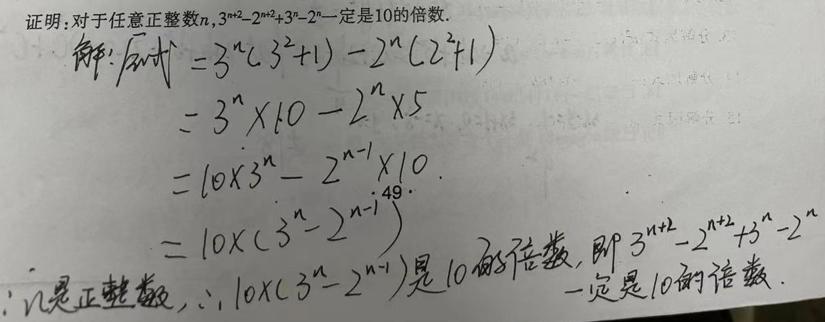 证明:对于任意正整数n,3ⁿ⁺²-2ⁿ⁺²+3ⁿ-2ⁿ一定是10的倍数.
解:原式=3ⁿ(3²+1)-2ⁿ(2²+1)
=3ⁿ×10-2ⁿ×5
=10×3ⁿ-2ⁿ⁻¹×10.
·49·
=10×(3ⁿ-2ⁿ⁻¹)
∵n是正整数,∴10×(3ⁿ-2ⁿ⁻¹)是10的倍数,即3ⁿ⁺²-2ⁿ⁺²+3ⁿ-2ⁿ
一定是10的倍数.